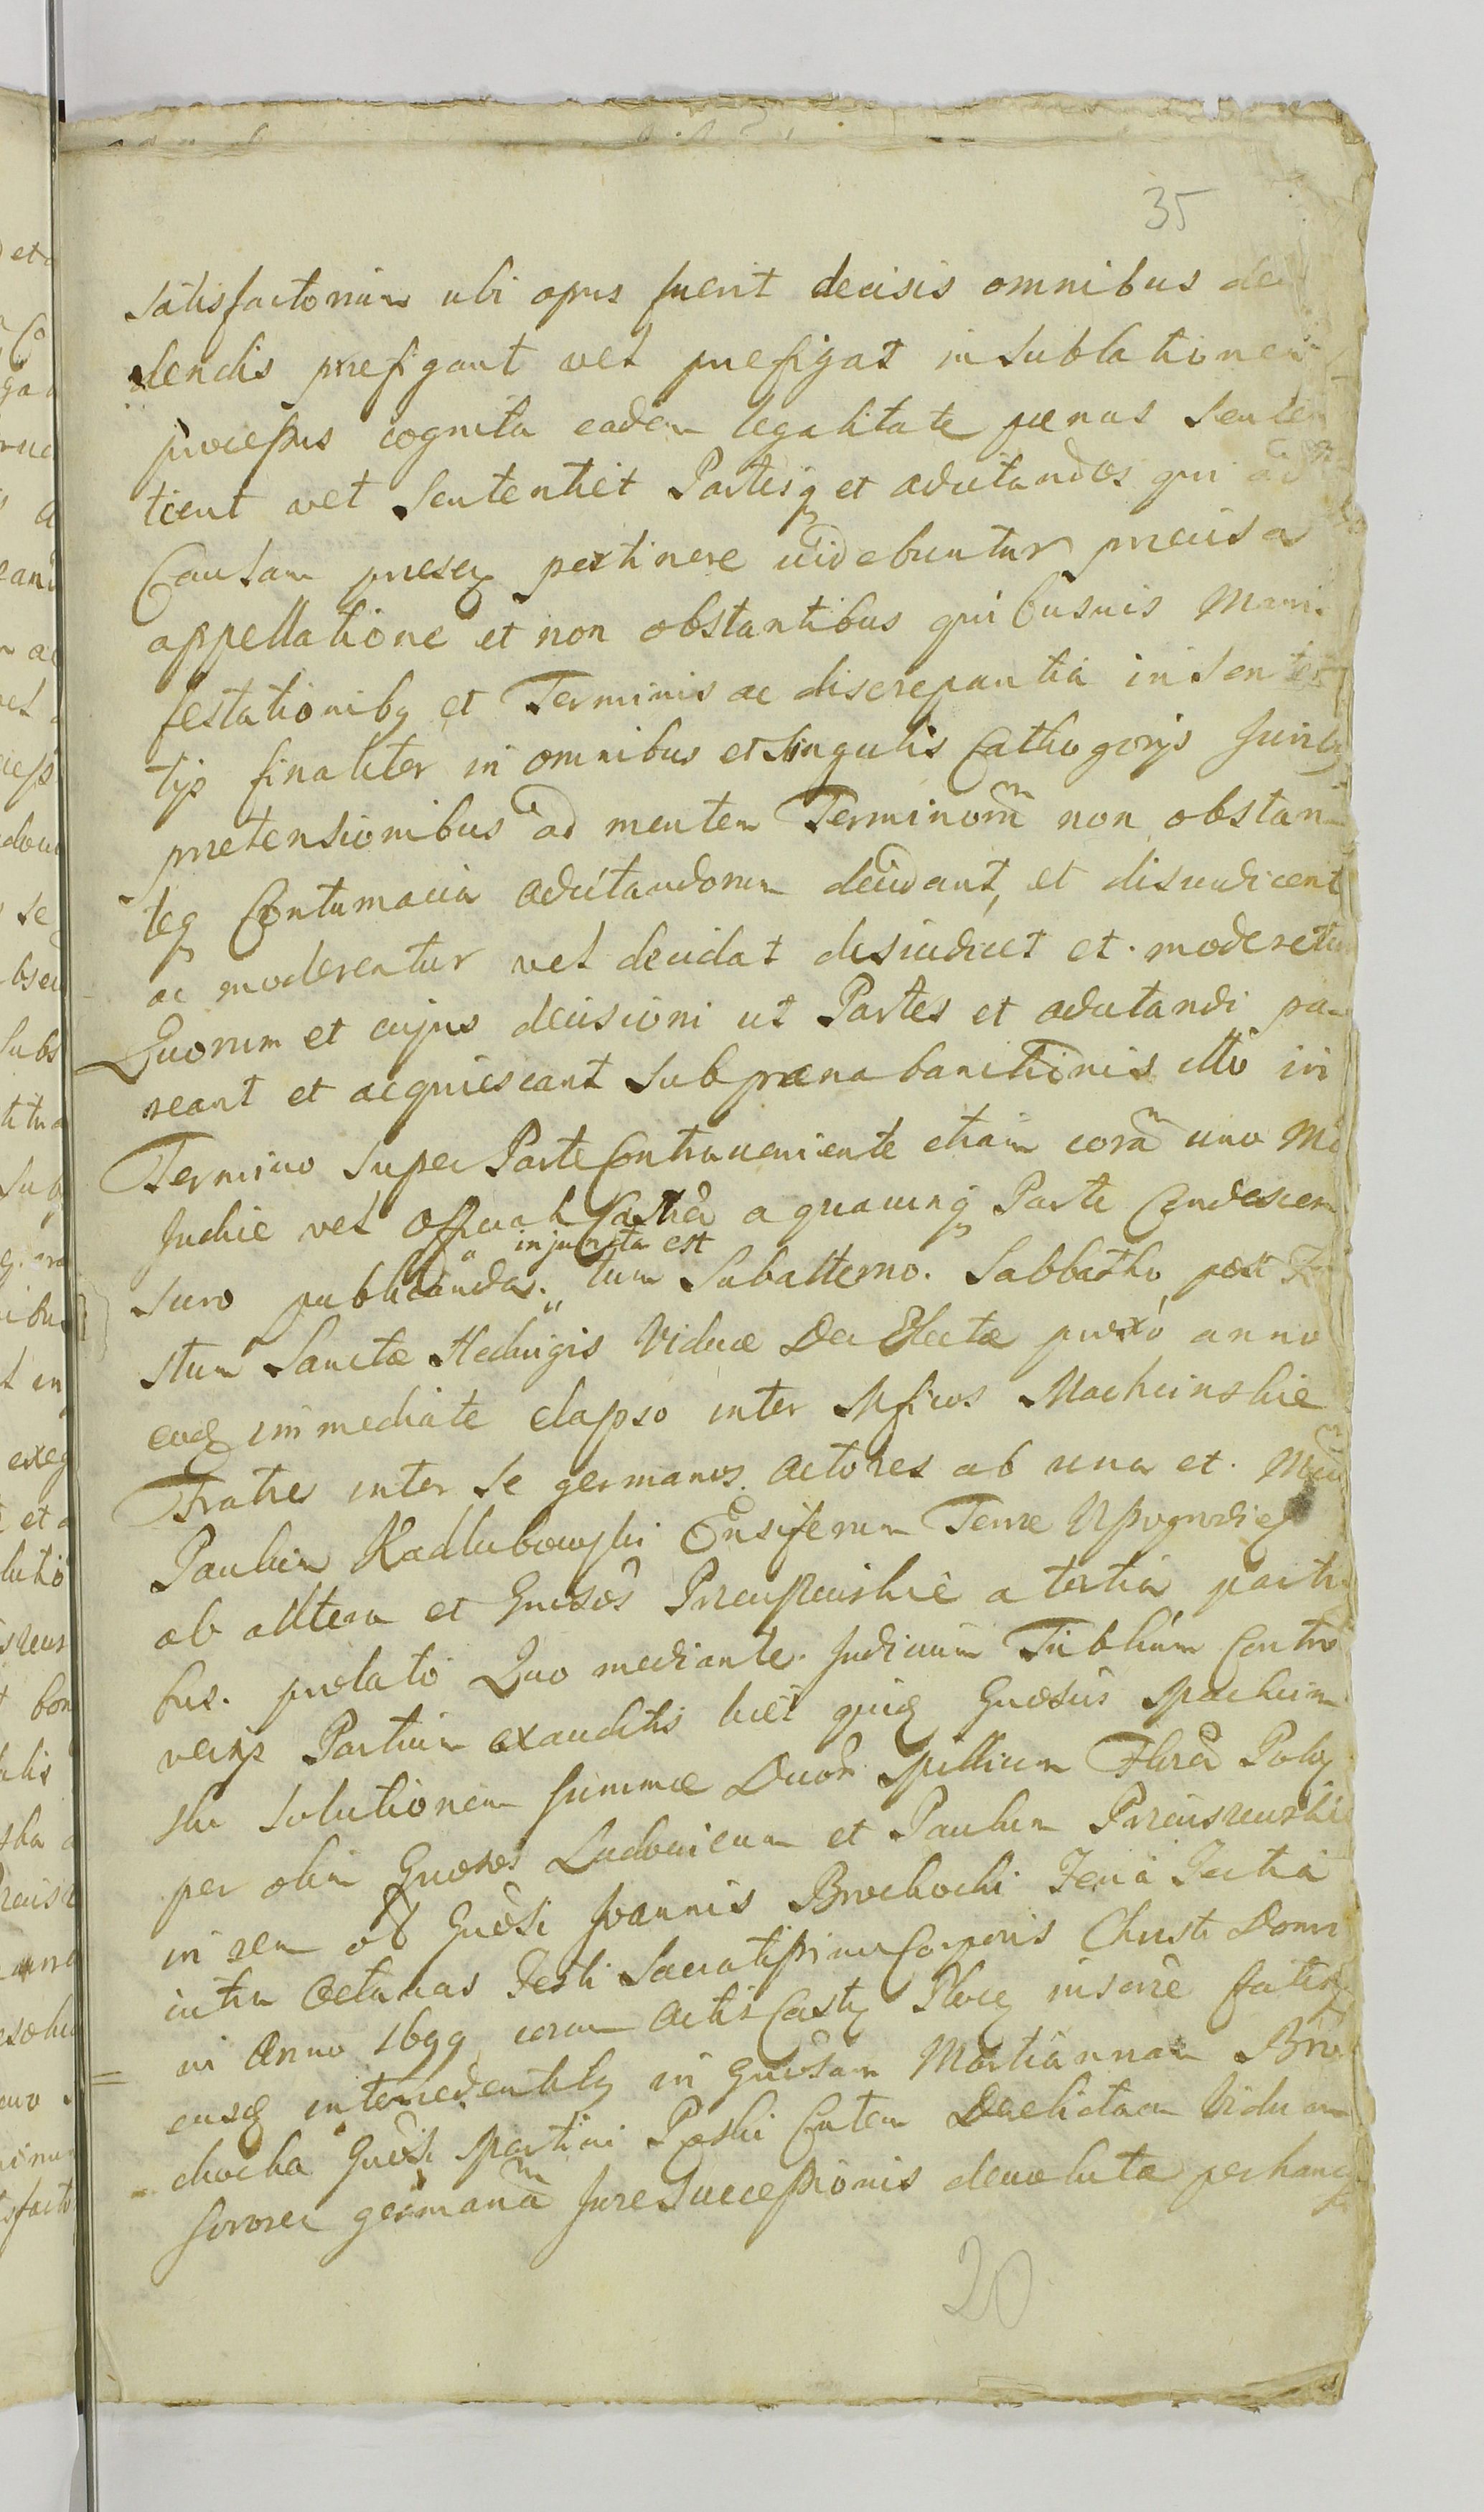 35
satisfactorium ubi opus fuerit decisis omnibus de
dendis prefigant vel prefigat in sublationem
processus cognita eadem legalitate pœnas senten
tient vel sententiet Partesq et adcitandos qui ad
Causam presen pertinere videbuntur precisa
appellatione et non obstantibus quibusvis Mani
festationibq et Terminis ac discrepantia in senten
tijs finaliter in omnibus et singulis Cathegorijs Juribq
pretensionibus ad mentem Terminorm non obstan
teq Contumacia adcitandorum decidant, et disiudicent
ac moderentur vel decidat disiudicet et moderetur
Quorum et cujus decisioni ut Partes et adcitandi pa
reant et acquiescant sub pœna banitionis
Termino super Parte Contraveniente etiam coram uno
Judic vel Offciali Castrn a quacunq Parte Condescen
injuncta est
suro publicanda. tum Subalterno. Sabbatho post Fe
stum Sanctæ Hedvigis Viduæ Electæ proxô anno
eodq immediate elapso inter Mficos Machcinskie
Fratres inter se germanos Actores ab una et
Paulum Kadlubowski Ensiferum Terræ Wyszogrodiens
ab altera et Gnosos Prcciszewskie a tertia parti
bus. prolato Quo mediante Judicium Tribliûm Contro
versijs Partium exauditis licet Gnosus Machcin
ski solutionem summæ Duor Millium Floren Polq
per olim Gnosos Ludovicum et Paulum Prcciszewskie
in rem Gnosi Joannis Brochocki Feria Tertia
intra Octavas Festi Sacratissimi Corporis Christi Domi
ni Anno 1699 coram Actis Castq Plocq inscrte
eiusq intercedentibq in Gnosam Mariannam Bro
chocka Gnosi Martini Consortem Derelictam Viduam
sororem germanam Jure Successionis devoluta per hancq
20